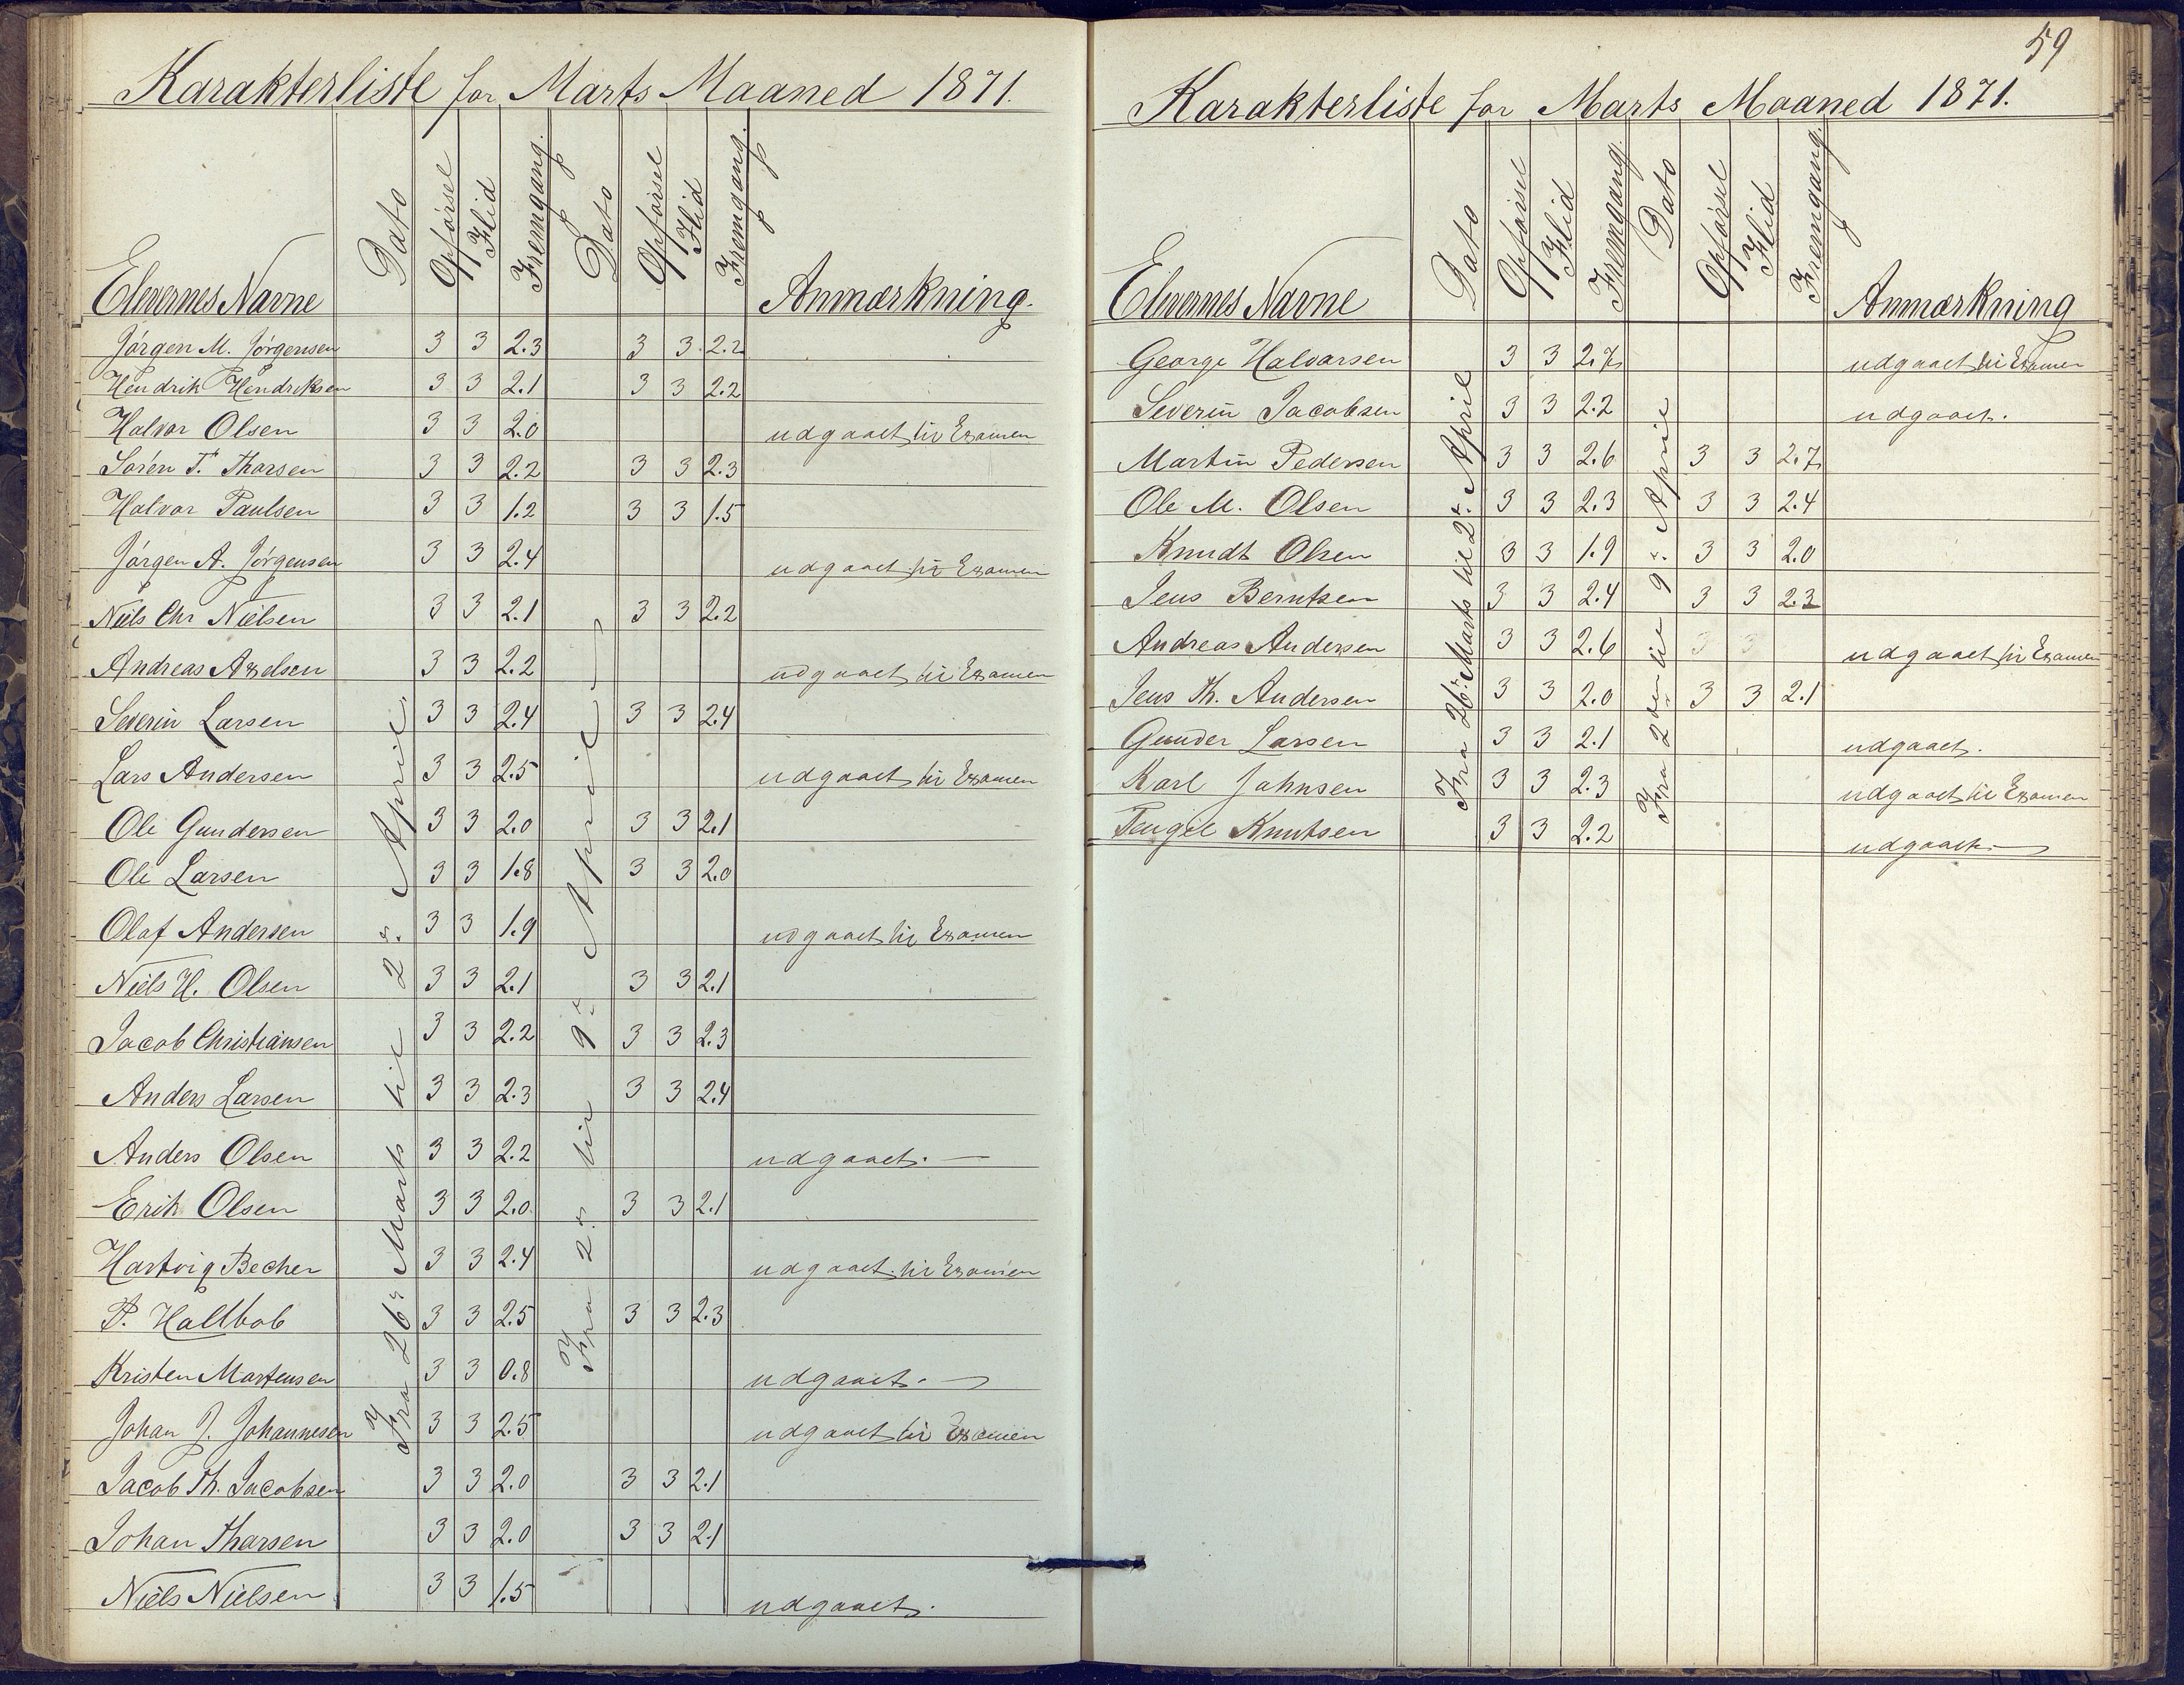 Karakterliste for Marts Maaned 1871.
Elevernes Navne Dato Opførsel Flid Fremgang. Dato Opførsel Flid Fremgang. Anmærkning.
Fra 26de Marts til 2den April
Fra 2den til 9de April
Jørgen M. Jørgensen 3 3 2.3 3 3 2.2
Hendrik Hendriksen 3 3 2.1 3 3 2.2
Halvor Olsen 3 3 2.0 udgaaet til Examen
Søren T. Thorsen 3 3 2.2 3 3 2.3
Halvor Paulsen 3 3 1.2 3 3 1.5
Jørgen A. Jørgensen 3 3 2.4 udgaaet til Examen
Niels Chr Nielsen 3 3 2.1 3 3 2.2
Andreas Axelsen 3 3 2.2 udgaaet til Examen
Severin Larsen 3 3 2.4 3 3 2.4
Lars Andersen 3 3 2.5 udgaaet til Examen
Ole Gundersen 3 3 2.0 3 3 2.1
Ole Larsen 3 3 1.8 3 3 2.0
Olaf Andersen 3 3 1.9 udgaaet til Examen
Niels H. Olsen 3 3 2.1 3 3 2.1
Jacob Christiansen 3 3 2.2 3 3 2.3
Anders Larsen 3 3 2.3 3 3 2.4
Anders Olsen 3 3 2.2 udgaaet. —
Erik Olsen 3 3 2.0 3 3 2.1
Hartvig Becher 3 3 2.4 udgaaet til Examen
P. Hallbob 3 3 2.5 3 3 2.3
Kristen Mortensen 3 3 0.8 udgaaet. —
Johan J. Johannesen 3 3 2.5 udgaaet til Examen
Jacob Th. Jacobsen 3 3 2.0 3 3 2.1
Johan Tharsen 3 3 2.0 3 3 2.1
Niels Nielsen 3 3 1.5 udgaaet.
59
Karakterliste for Marts Maaned 1871.
Elevernes Navne Dato Opførsel Flid Fremgang. Dato Opførsel Flid Fremgang. Anmærkning
Fra 26de Marts til 2den April
Fra 2den til 9de April
George Halvorsen 3 3 2.7 udgaaet til Examen
Severin Jacobsen 3 3 2.2 udgaaet.
Martin Pedersen 3 3 2.6 3 3 2.7
Ole M. Olsen 3 3 2.3 3 3 2.4
Knudt Olsen 3 3 1.9 3 3 2.0
Jens Berntsen 3 3 2.4 3 3 2.3
Andreas Andersen 3 3 2.6 3 3 udgaaet til Examen
Jens Th. Andersen 3 3 2.0 3 3 2.1
Gunder Larsen 3 3 2.1 udgaaet.
Karl Johnsen 3 3 2.3 udgaaet til Examen
Tengel Knutsen 3 3 2.2 udgaaet. —